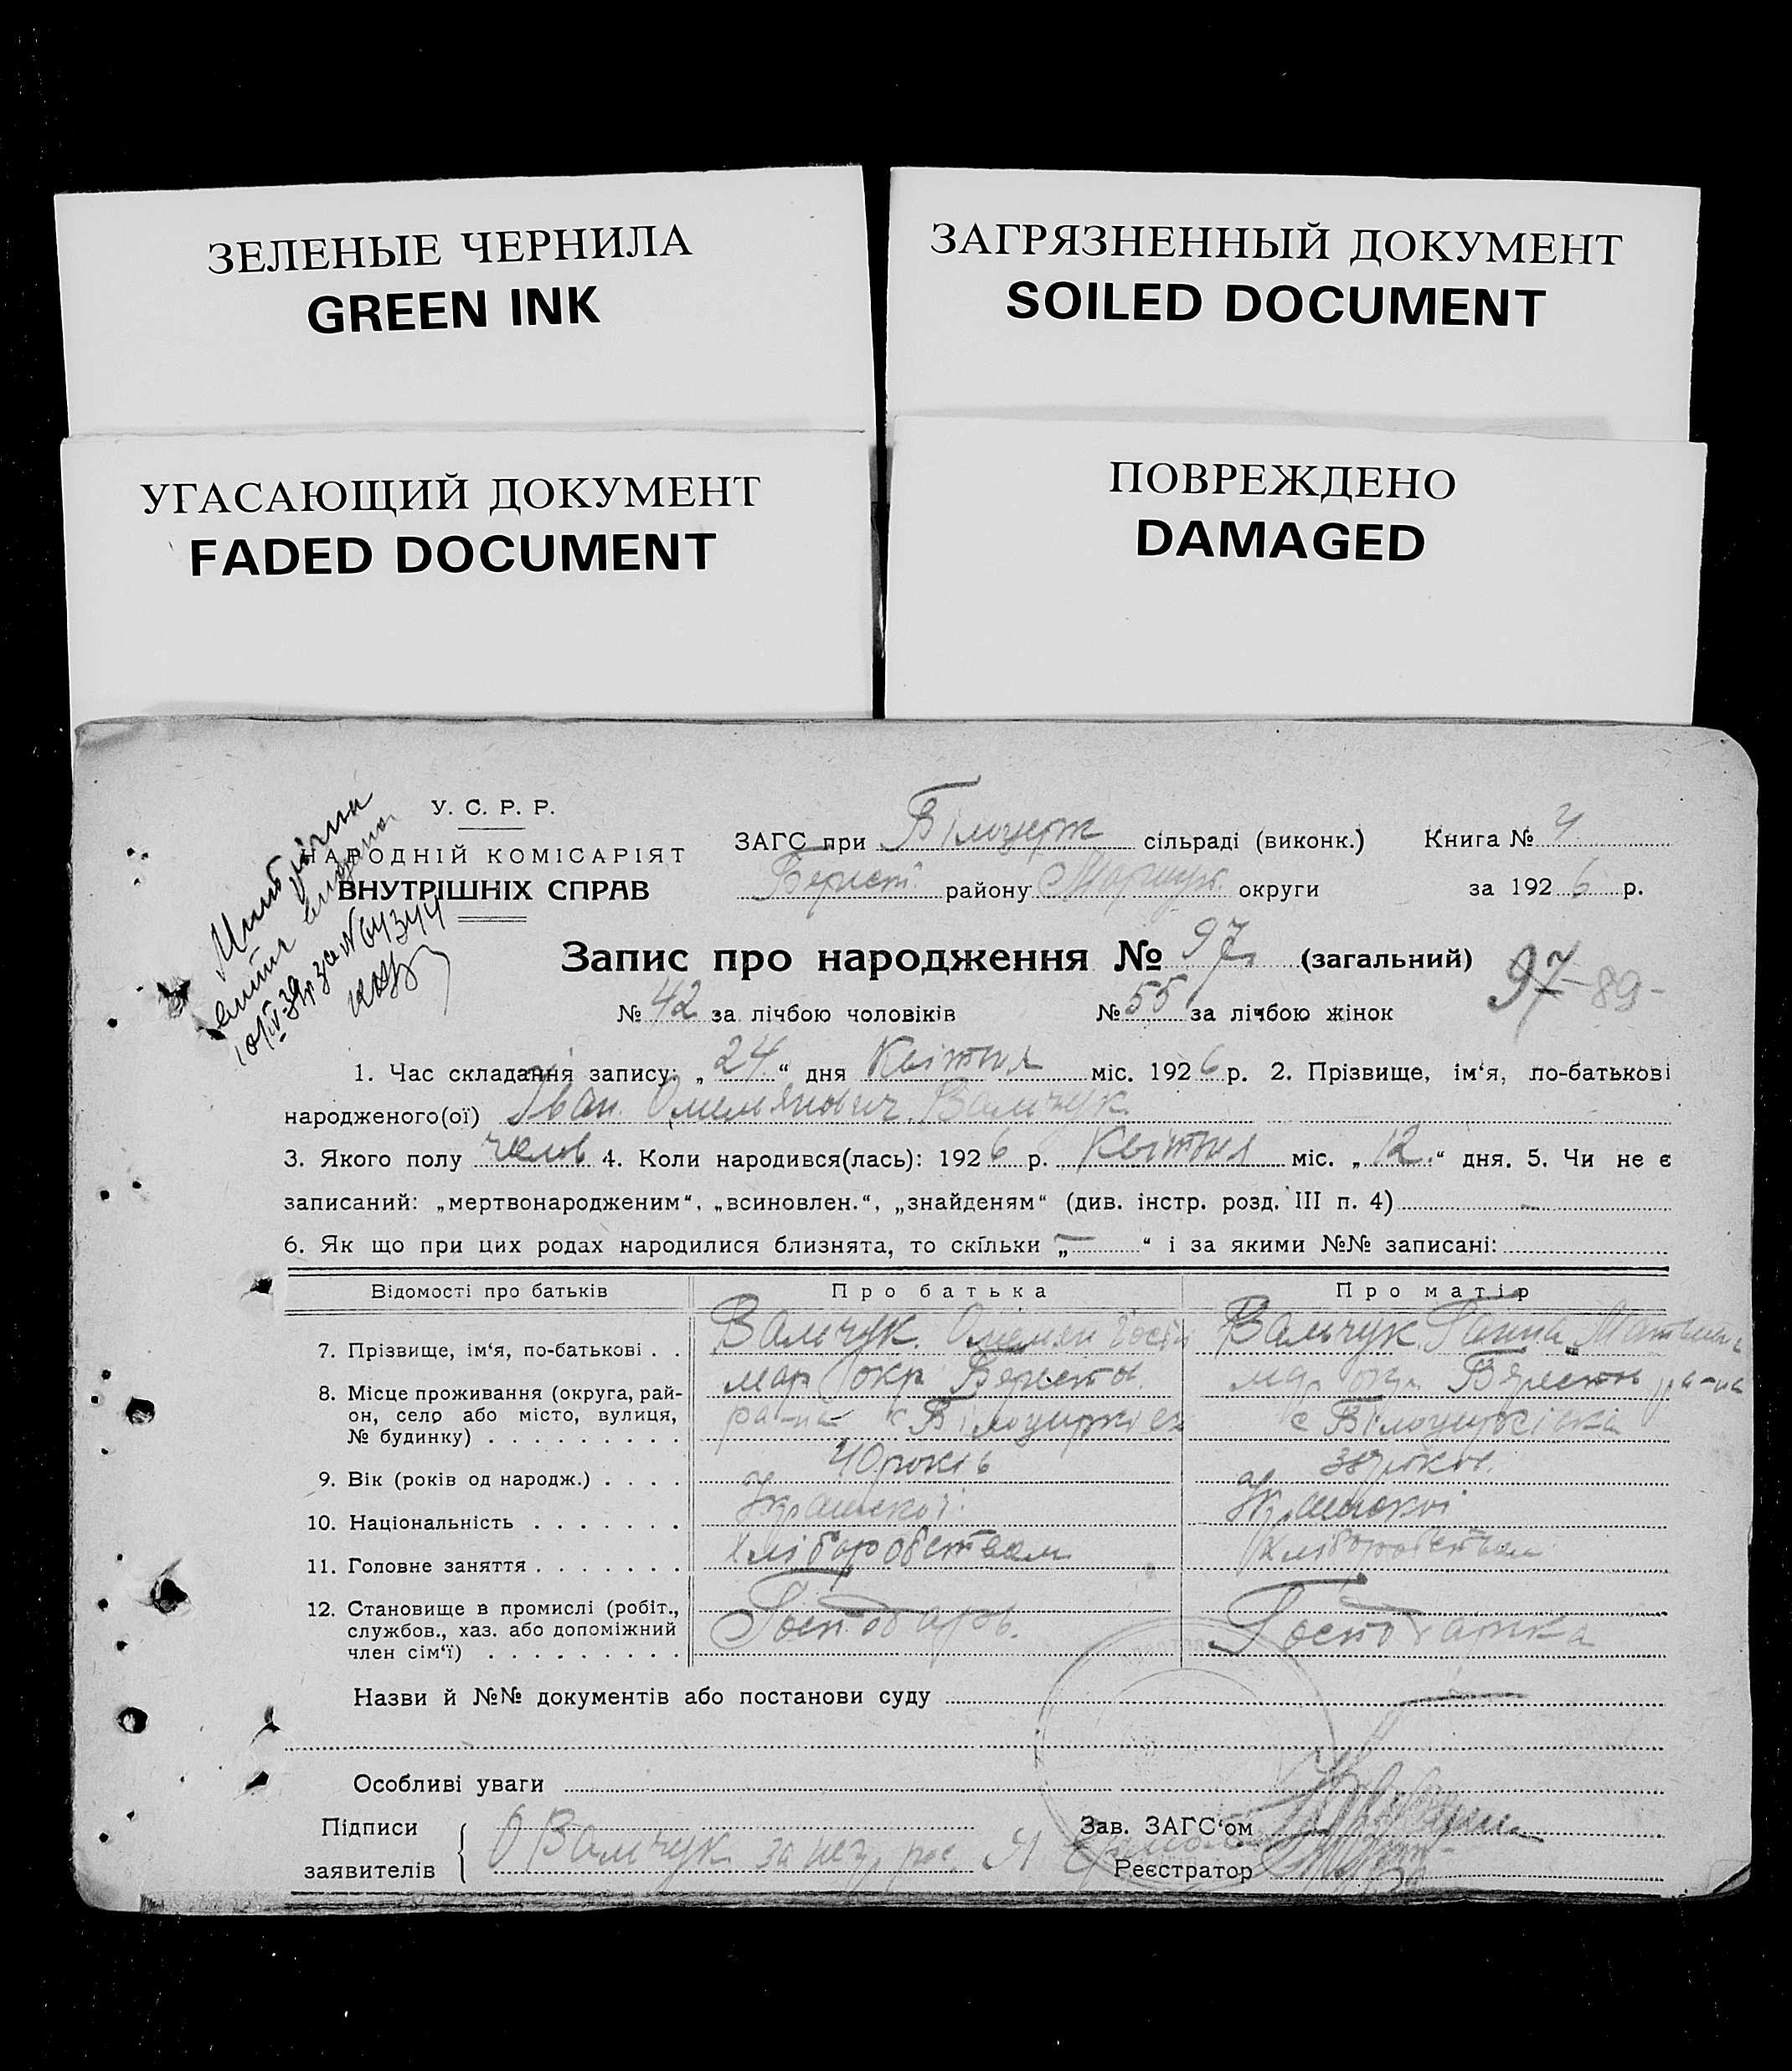 ЗЕЛЕНЫЕ ЧЕРНИЛА
GREEN INK
ЗАГРЯЗНЕННЫЙ ДОКУМЕНТ
SOILED DOCUMENT
УГАСАЮЩИЙ ДОКУМЕНТ
FADED DOCUMENT
ПОВРЕЖДЕНО
DAMAGED
У. С. Р. Р.
НАРОДНІЙ КОМІСАРІЯТ
ВНУТРІШНІХ СПРАВ
ЗАГС при Білоцерк сільраді (виконк.) Книга № 4
Берест. району Маріуп. округи за 1926 р.
Запис про народження № 97 (загальний) 97 -89-
№ 42 за лічбою чоловіків № 55 за лічбою жінок
1. Час складання запису: „24“ дня Квітня міс. 1926 р. 2. Прізвище, ім‘я, по-батькові
народженого(ої) Іван Омелянович Вальчук
3. Якого полу челов 4. Коли народився(лась): 1926 р. Квітня міс. „12“ дня. 5. Чи не є
записаний: „мертвонародженим“, „всиновлен.“, „знайденям“ (див. інстр. розд. III п. 4) –
6. Як що при цих родах народилися близнята, то скільки „–“ і за якими №№ записані:
Відомості про батьків Про батька Про матір
7. Прізвище, ім‘я, по-батькові . . Вальчук Омелян Вальчук Ганна
8. Місце проживання (округа, рай- мар окр Берестов мар окр Берестов ра-на
он, село або місто, вулиця, ра-на с с
№ будинку)
9. Вік (років од народж.) . . . . 40 років років
10. Національність . . . . . . . Української Української
11. Головне заняття . . . . . . . хліборобством хліборобством
12. Становище в промислі (робіт., Господарь Господарка
службов., хаз. або допоміжний
член сім‘ї)
Назви й №№ документів або постанови суду –
Особливі уваги
Підписи Зав. ЗАГС‘ом
О Вальчук за нез. рос.
заявителів Реєстратор